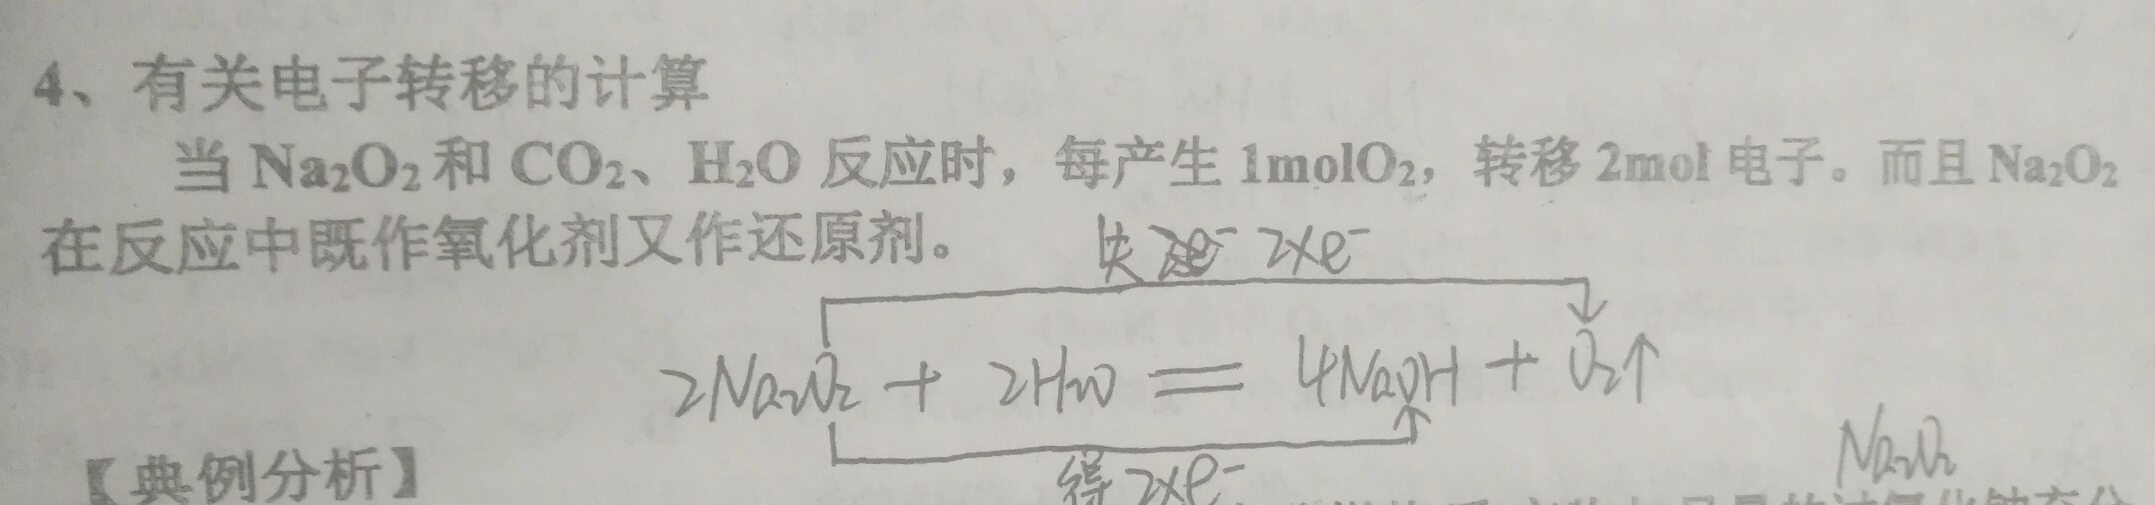 4、有关电子转移的计算
当 Na₂O₂ 和 CO₂、H₂O 反应时，每产生 1molO₂，转移 2mol 电子。而且 Na₂O₂
在反应中既作氧化剂又作还原剂。
失 2×e⁻
2Na₂O₂ + 2H₂O = 4NaOH + O₂↑
得 2×e⁻
Na₂O₂
【典例分析】